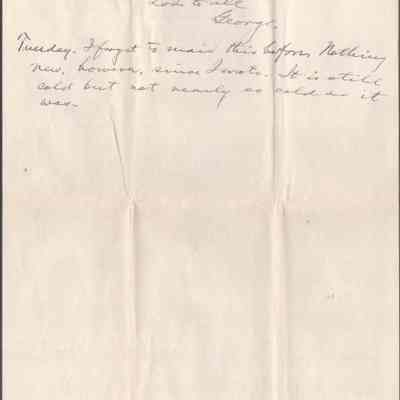 Love to all
George.
Tuesday. I forgot to mail this before. Nothing
new, however, since I wrote. It is still
cold but not nearly so cold as it
was.